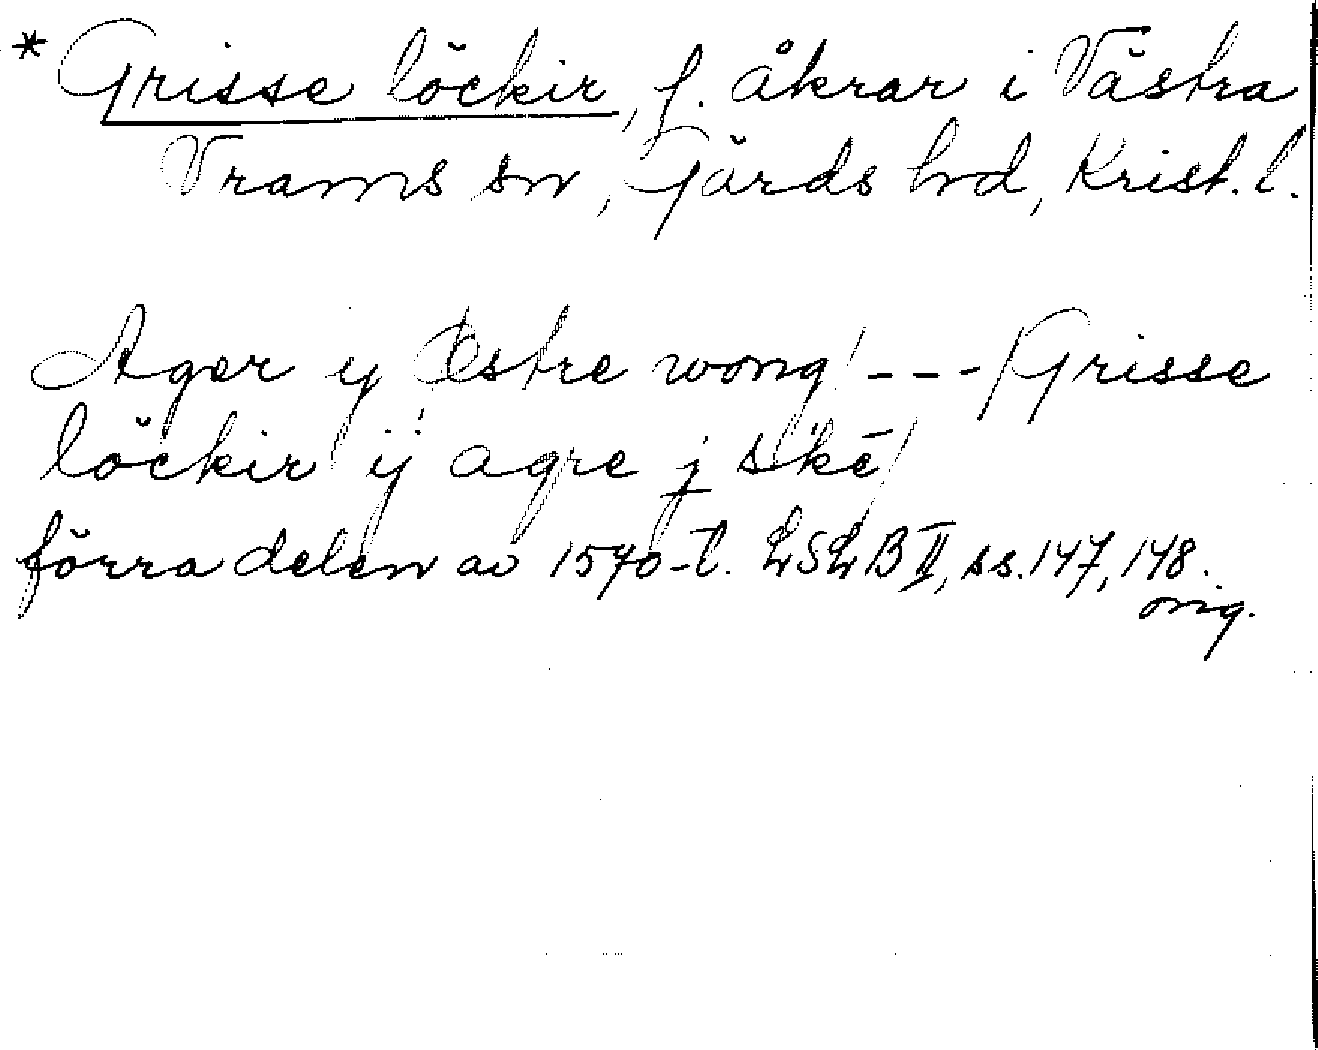 * Grisse löckir, f. åkrar i Västra
Vrams sn, Gärds hd, Krist. l.
Ager y Østre wong/ --- /Grisse
löckir ij agre j
förra delen av 1570-t. LSLB II, ss. 147, 148.
orig.